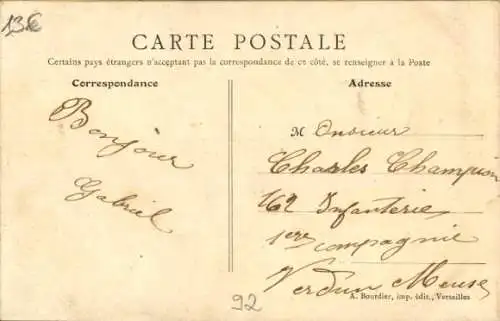 13€
CARTE POSTALE
Certains pays étrangers n'acceptant pas la correspondance de ce côté, se renseigner à la Poste
Correspondance
Bonjour
Gabriel
Adresse
M Onsieur
Charles Champion
162 Infanterie
1ere compagnie
Verdun Meuse
A. Bourdier, imp. édit., Versailles
92